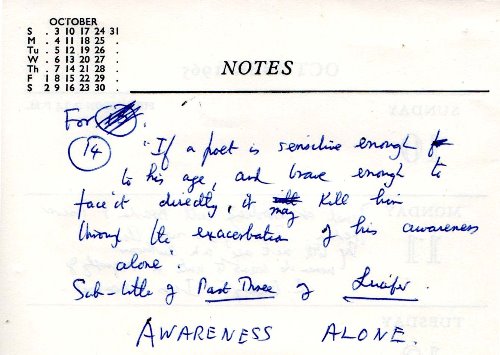 OCTOBER
S . 3 10 17 24 31
M . 4 11 18 25 .
Tu . 5 12 19 26 .
W . 6 13 20 27 .
Th . 7 14 21 28 .
F 1 8 15 22 29 .
S 2 9 16 23 30 .
NOTES
For
14
"If a poet is sensitive enough
to his age, and brave enough to
face it directly, it may kill him
through the exacerbation of his awareness
alone".
Sub-title of Part Three of Lucifer.
AWARENESS ALONE.